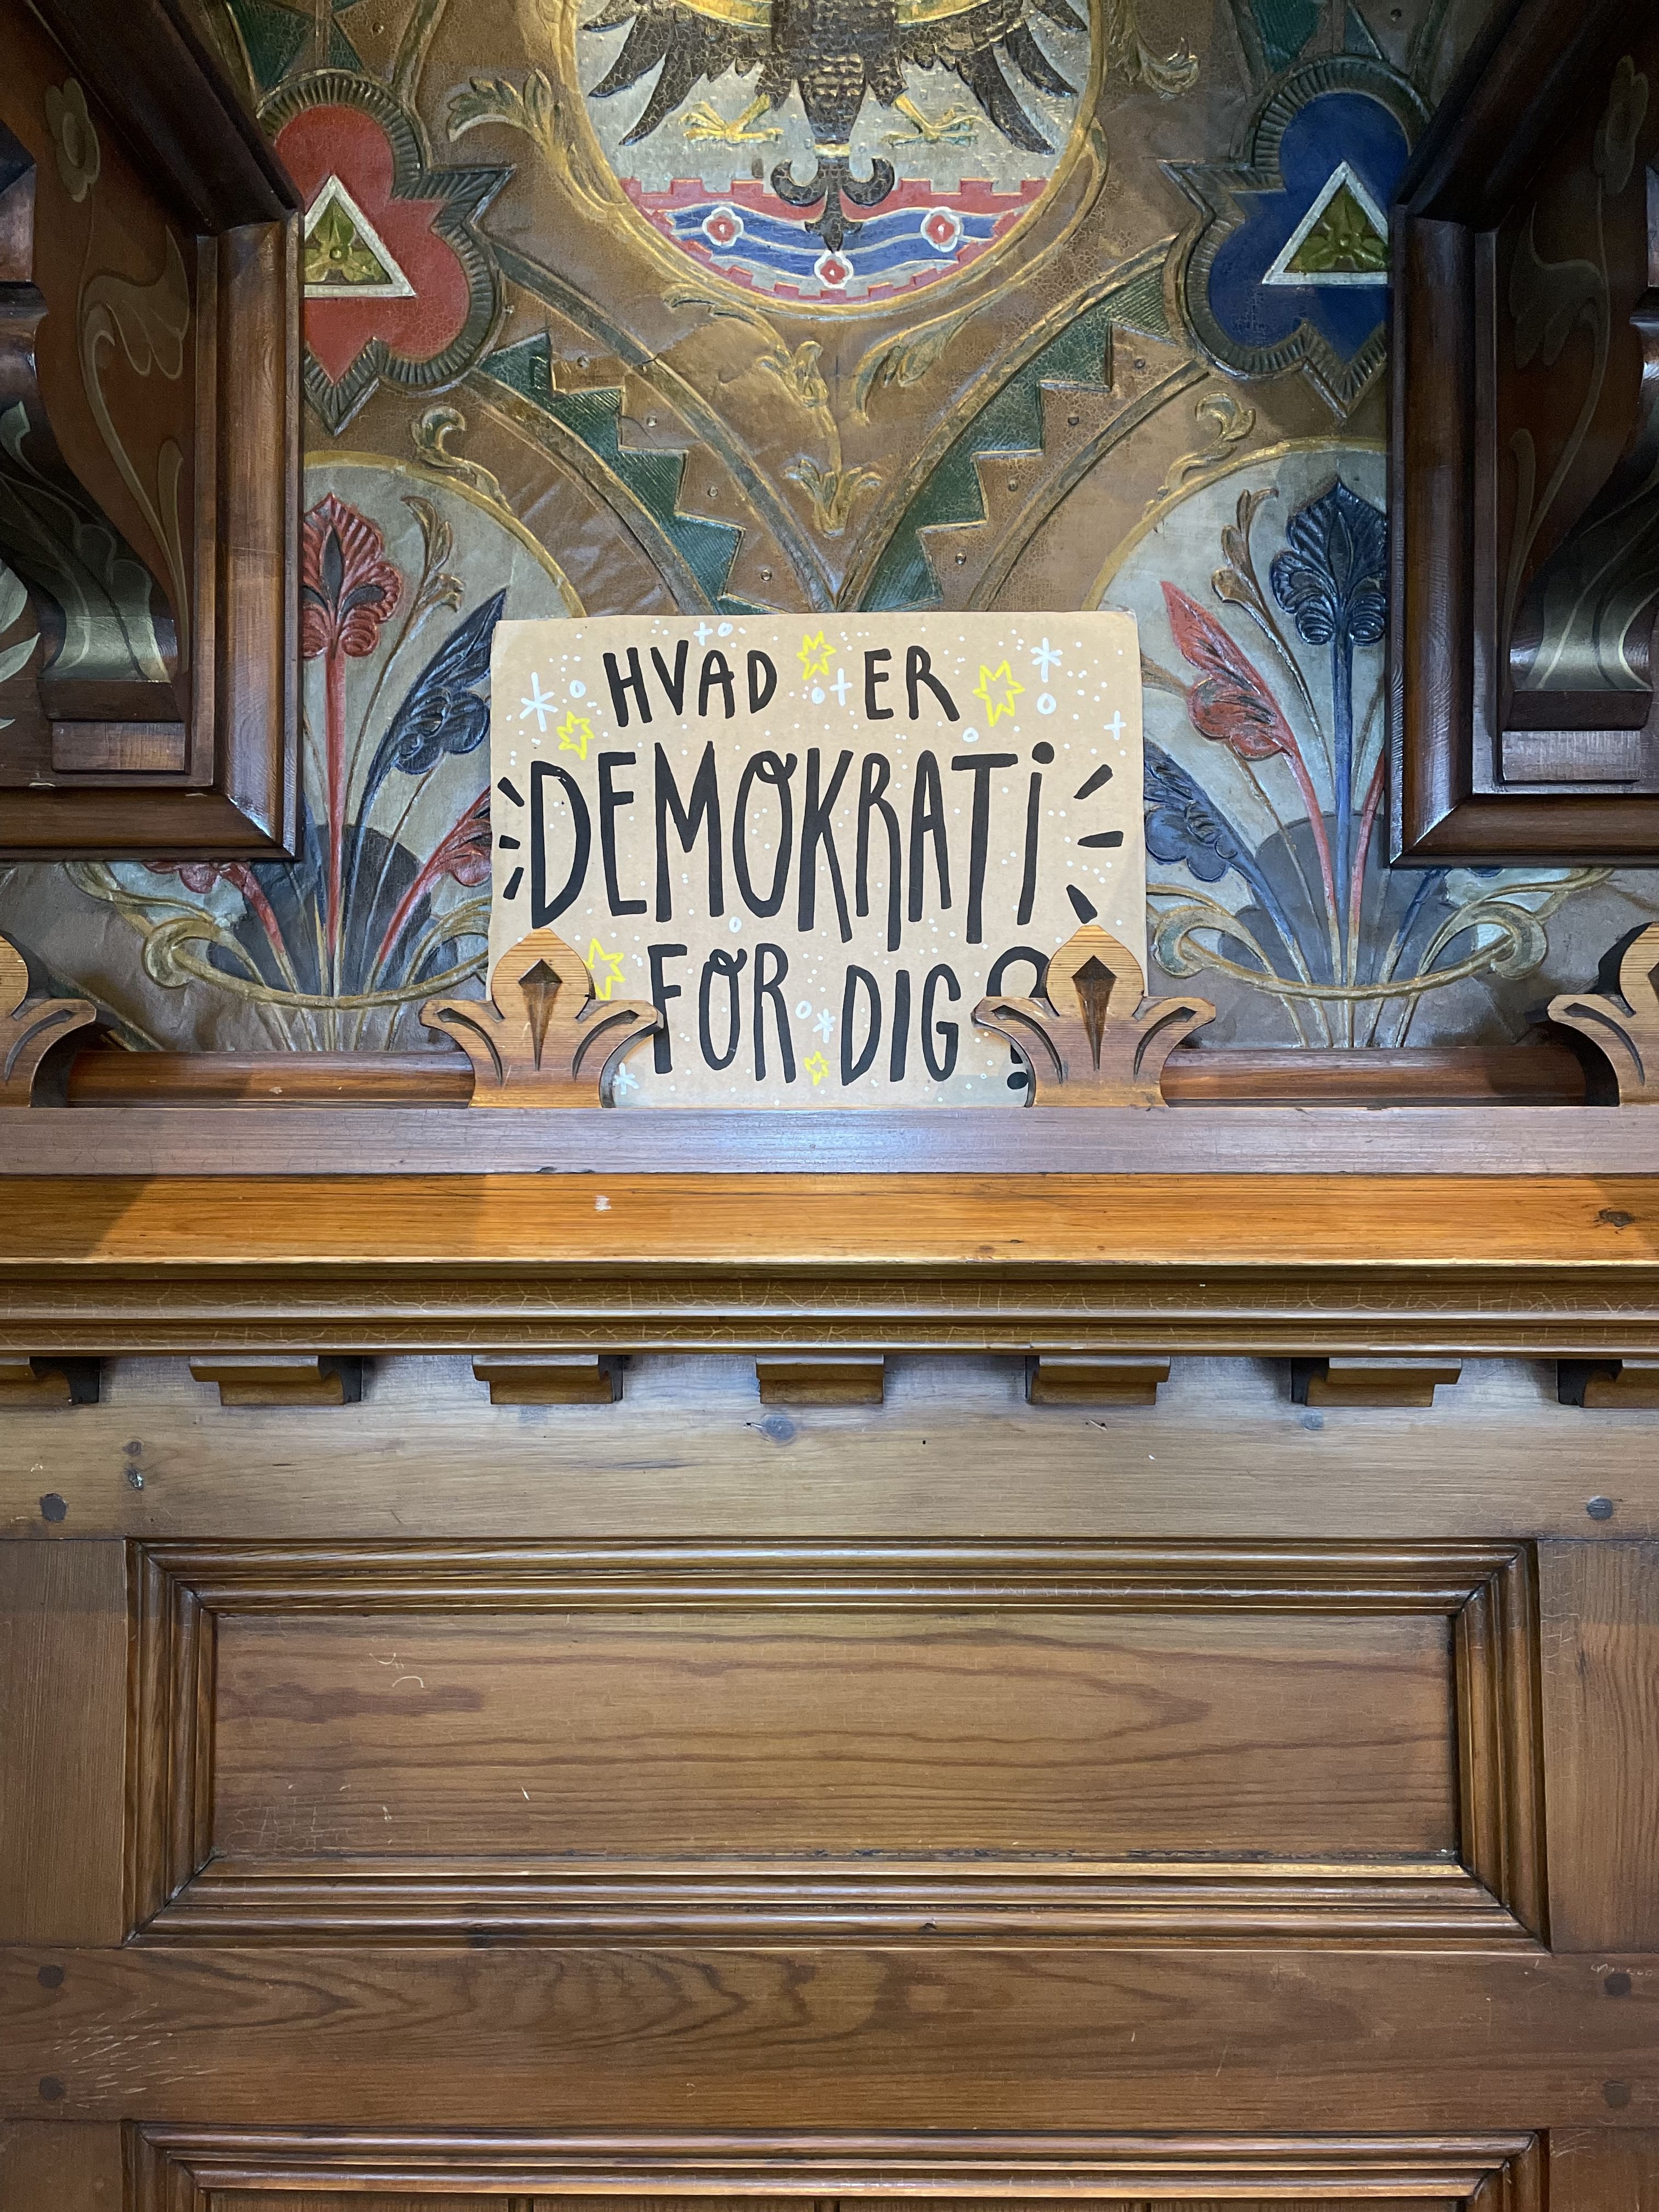 HVAD ER
DEMOKRATi
FOR DIG?